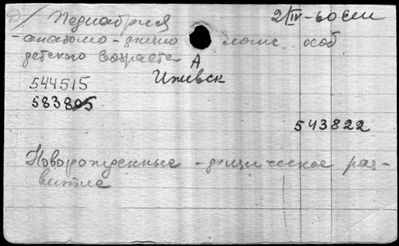 Педиатрия 2/IV-60
-анатомо-физио особ
детского возраста А
Ижевск
544515
583805
543822
Новорожденные -физическое раз-
витие